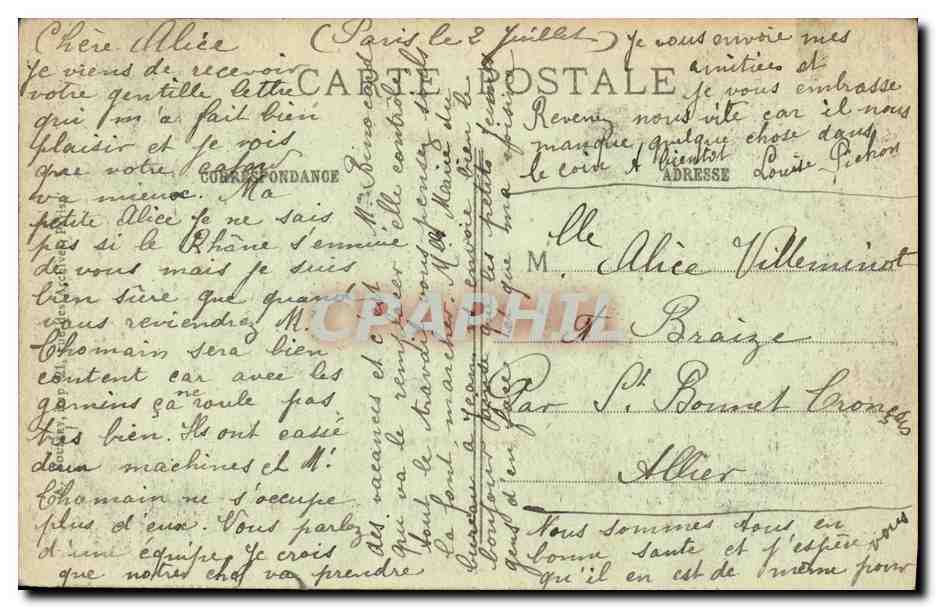 Chère Alice (Paris le 2 Juillet)
Je viens de recevoir
votre gentille lettre
qui m'a fait bien
plaisir et je vois
que votre
va mieux. Ma
petite Alice Je ne sais
pas si le Rhâne s'ennuie
de vous mais je suis
bien sûre que quand
vous reviendrez M.
Chomain sera bien
content car avec les
gamins ça ne roule pas
tres bien. Ils ont cassé
deux machines et Mr
Chomain ne s'occupe
plus d'eux. Vous parlez
d'une équipe Je crois
que notre chef va prendre
des vacances et c'est Mme Binnocas
qui va le remplacer elle contrôle
tout le travail vous pensez si ils
la font marcher. Melle Marie du
bureau a Jean qui envoie bien le
bonjour ainsi que les petits jeunes
gens d'en face que ma
CARTE POSTALE
CORRESPONDANCE
ADRESSE
Je vous envoie mes
amitiées et
je vous embrasse
Revenez nous vite car il nous
manque quelque chose dans
le coin A bientot Louise Pichon
M. lle Alice Villeminot
A Braize
Par St. Bonnet Tronçais
Allier
Nous sommes tous en
bonne sante et j'espère
qu'il en est de même pour
vous
CPAPHIL